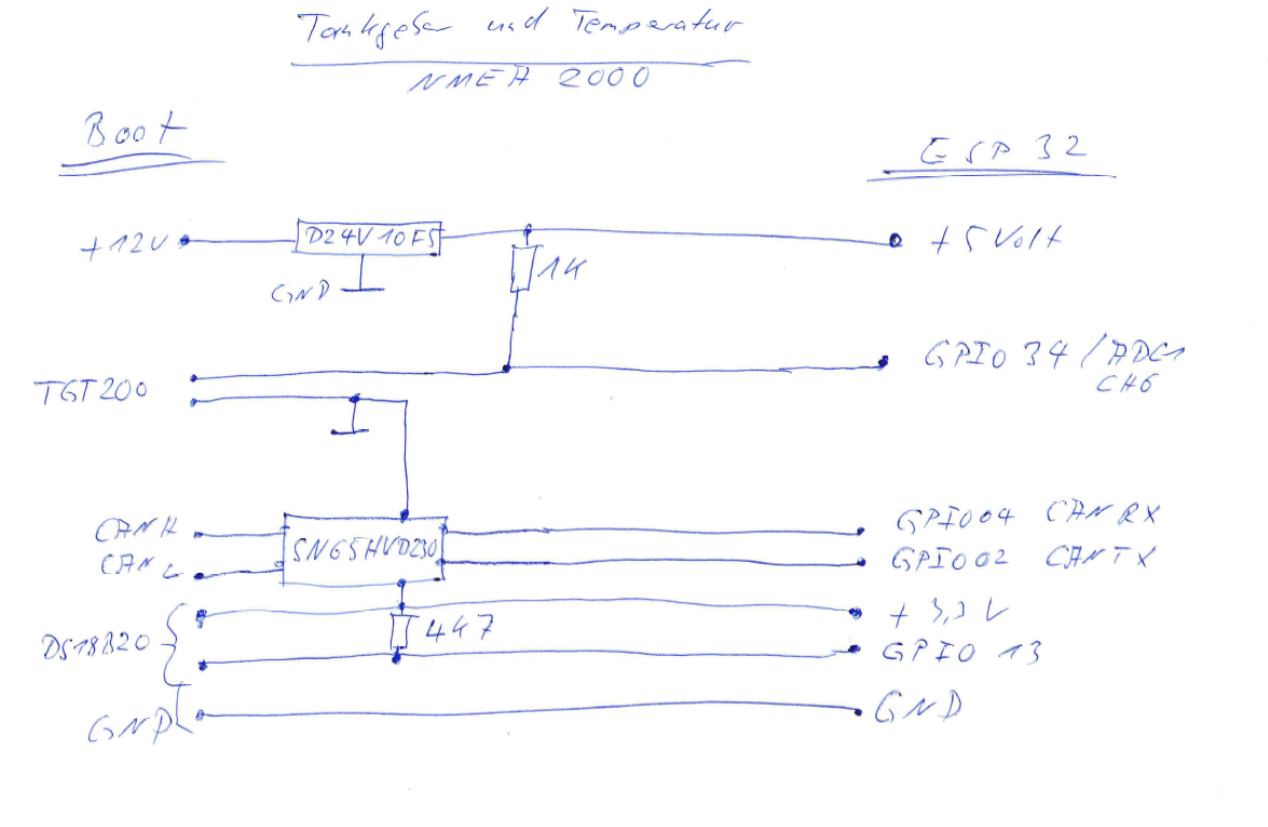 Tankgeber und Temperatur
NMEA 2000
Boot
ESP 32
+12V
D24V10F5
+5Volt
GND
1K
GPIO 34 / ADC1
CH6
TGT200
CAN H
CAN L
SN65HVD230
GPIO04 CAN RX
GPIO02 CAN TX
+3,3V
DS18B20
4k7
GPIO 13
GND
GND